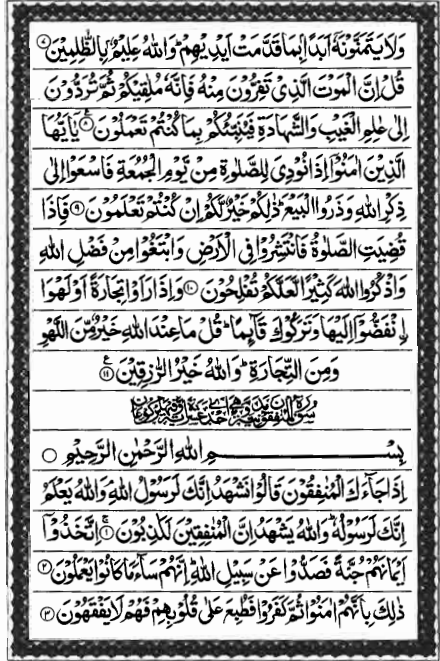 وَلَا يَتَمَنَّوْنَهٗۤ اَبَدًۢا بِمَا قَدَّمَتْ اَيْدِيْهِمْ ؕ وَاللّٰهُ عَلِيْمٌۢ بِالظّٰلِمِيْنَ ۷
قُلْ اِنَّ الْمَوْتَ الَّذِيْ تَفِرُّوْنَ مِنْهُ فَاِنَّهٗ مُلٰقِيْكُمْ ثُمَّ تُرَدُّوْنَ
اِلٰى عٰلِمِ الْغَيْبِ وَالشَّهَادَةِ فَيُنَبِّئُكُمْ بِمَا كُنْتُمْ تَعْمَلُوْنَ ۸ ع يٰۤاَيُّهَا
الَّذِيْنَ اٰمَنُوْۤا اِذَا نُوْدِيَ لِلصَّلٰوةِ مِنْ يَّوْمِ الْجُمُعَةِ فَاسْعَوْا اِلٰى
ذِكْرِ اللّٰهِ وَذَرُوا الْبَيْعَ ؕ ذٰلِكُمْ خَيْرٌ لَّكُمْ اِنْ كُنْتُمْ تَعْلَمُوْنَ ۹ فَاِذَا
قُضِيَتِ الصَّلٰوةُ فَانْتَشِرُوْا فِي الْاَرْضِ وَابْتَغُوْا مِنْ فَضْلِ اللّٰهِ
وَاذْكُرُوا اللّٰهَ كَثِيْرًا لَّعَلَّكُمْ تُفْلِحُوْنَ ۱۰ وَاِذَا رَاَوْا تِجَارَةً اَوْ لَهْوَا
۟انْفَضُّوْۤا اِلَيْهَا وَتَرَكُوْكَ قَآئِمًا ؕ قُلْ مَا عِنْدَ اللّٰهِ خَيْرٌ مِّنَ اللَّهْوِ
وَمِنَ التِّجَارَةِ ؕ وَاللّٰهُ خَيْرُ الرّٰزِقِيْنَ ۱۱ ع
بِسْمِ اللّٰهِ الرَّحْمٰنِ الرَّحِيْمِ
اِذَا جَآءَكَ الْمُنٰفِقُوْنَ قَالُوْا نَشْهَدُ اِنَّكَ لَرَسُوْلُ اللّٰهِ ۘ وَاللّٰهُ يَعْلَمُ
اِنَّكَ لَرَسُوْلُهٗ ؕ وَاللّٰهُ يَشْهَدُ اِنَّ الْمُنٰفِقِيْنَ لَكٰذِبُوْنَ ۱ اِتَّخَذُوْۤا
اَيْمَانَهُمْ جُنَّةً فَصَدُّوْا عَنْ سَبِيْلِ اللّٰهِ ؕ اِنَّهُمْ سَآءَ مَا كَانُوْا يَعْمَلُوْنَ ۲
ذٰلِكَ بِاَنَّهُمْ اٰمَنُوْا ثُمَّ كَفَرُوْا فَطُبِعَ عَلٰى قُلُوْبِهِمْ فَهُمْ لَا يَفْقَهُوْنَ ۳